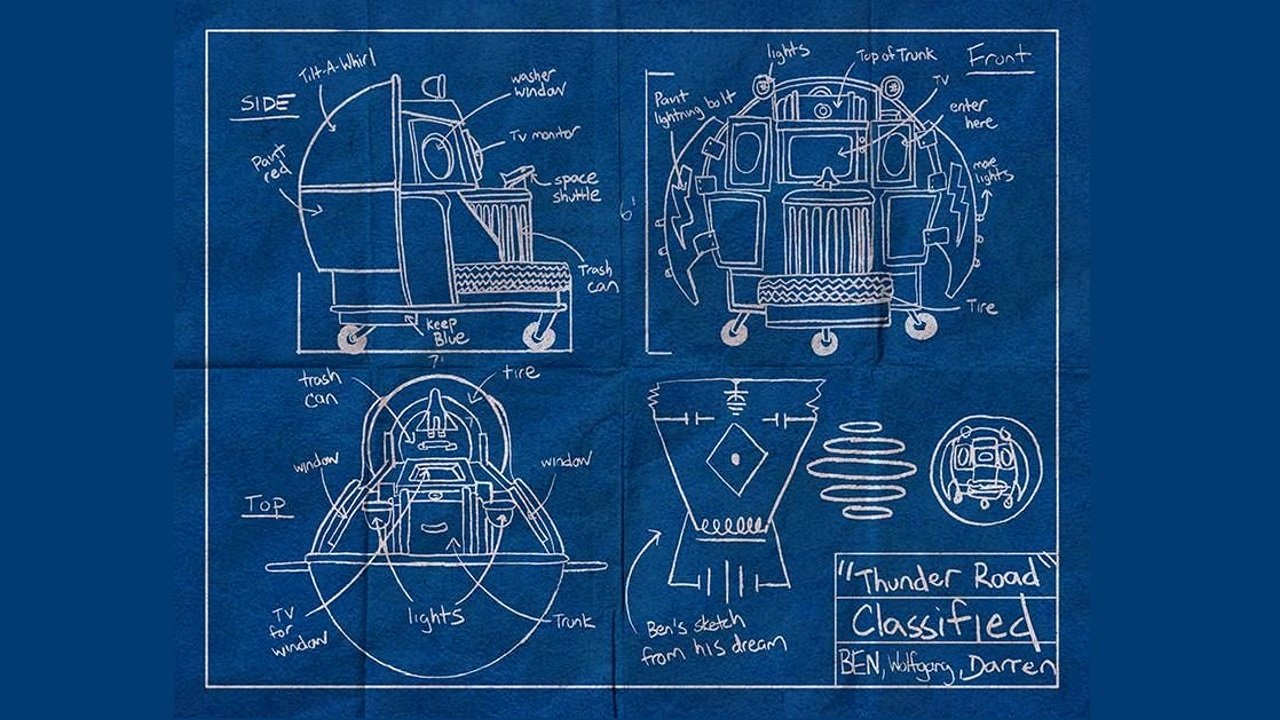 SIDE
Tilt-A-Whirl
washer
window
TV monitor
Paint
red
space
shuttle
Trash
can
Keep
Blue
7'
lights
Top of Trunk
Front
TV
Paint
lightning bolt
enter
here
more
lights
6'
Tire
trash
can
tire
window
window
Top
TV
for
window
lights
Trunk
Ben's sketch
from his dream
"Thunder Road"
Classified
BEN, Wolfgang, Darren